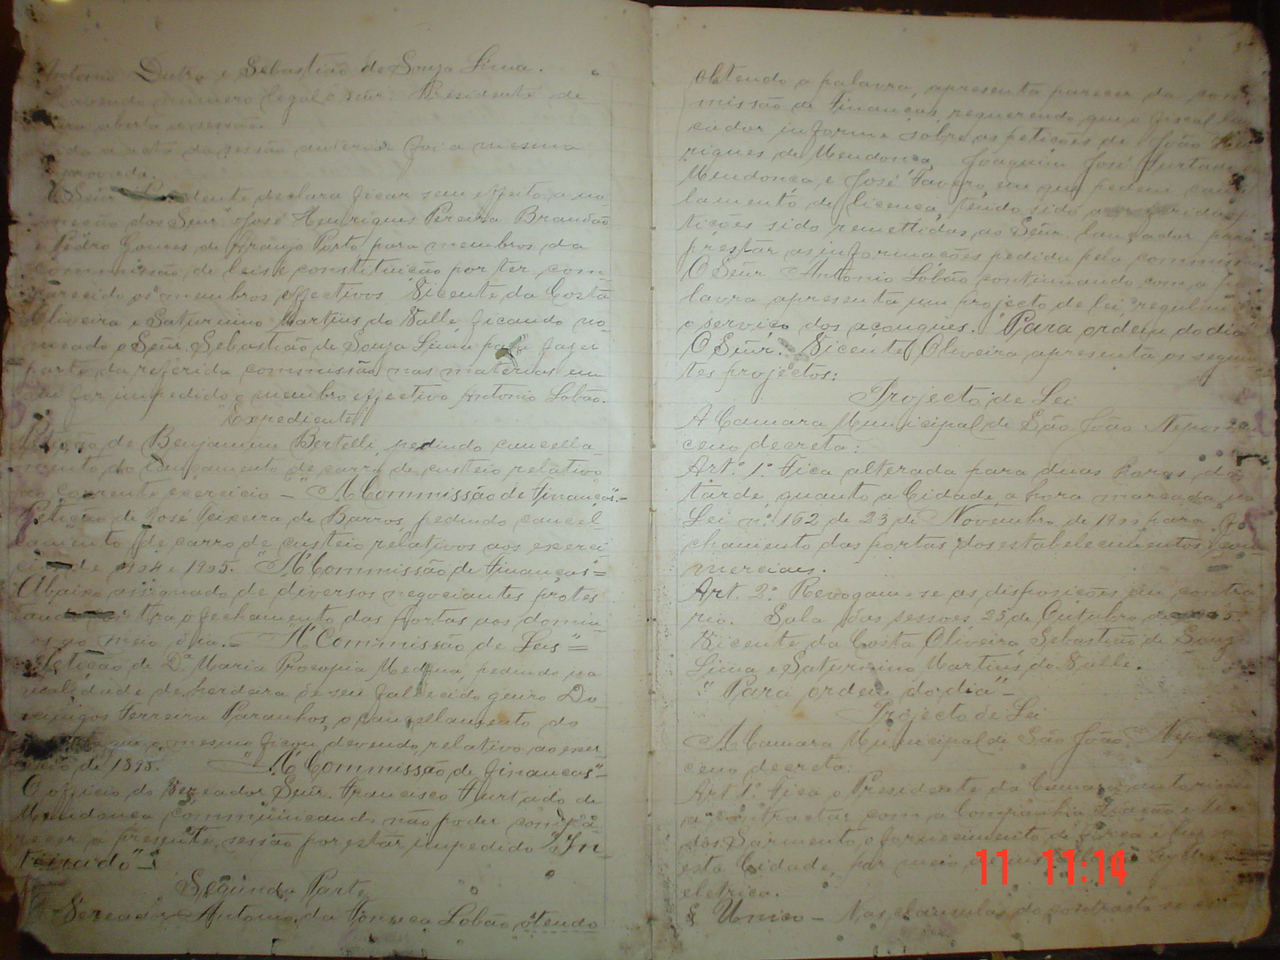 Antonio Dutra e Sebastião de Souza Lima.
Havendo numero legal o Snr. Presidente de
aberta a sessão.
a acta da sessão anterior foi a mesma
approvada.
O Senr. Presidente declara ficar sem effeito a no
meação dos Senr. José Henriques Pereira Brandão
e Pedro Gomes de Araujo Porto para membros da
commissão de leis e constituição por ter com
parecido os membros effectivos Vicente da Costa
Oliveira e Saturnino Martins do Valle, ficando no
meado o Señr. Sebastião de Souza Lima para fazer
parte da referida commissão nas materias em
que for impedido o membro effectivo Antonio Lobão.
"Expediente"
Petição de Benjamim Bertelli, pedindo cancella
mento do lançamento de carro de custeio relativo
ao corrente exercicio - "A Commissão de Finanças"-
Petição de José Teixeira de Barros, pedindo cancel
lamento de carro de custeio relativos aos exerci
cios de 1904 e 1905. "A Commissão de Finanças"=
Abaixo assignado de diversos negociantes protes
tando contra o fechamento das portas aos domin
gos ao meio dia.- "A Commissão de Leis"=
Petição de Da. Maria Procopia Medina, pedindo na
qualidade de herdeira de seu fallecido genro Do
mingos Ferreira Paranhos, o cancellamento do
que o mesmo ficou devendo, relativo ao exer
cicio de 1895. "A Commissão de finanças"-
Officio do Vereador Senr. Francisco Furtado de
Mendonça communicando não poder compa
recer a presente sessão por estar impedido "In
teirado"-
Segunda Parte
O Vereador Antonio da Fonseca Lobão, otendo
obtendo a palavra, apresenta parecer da com
missão de Finanças, requerendo que o fiscal lan
çador informe sobre as petições de João Hen
riques de Mendonça, Joaquim José Furtado
Mendonça e José Favero, em que pedem cancel
lamento de licença, tendo sido as referidas pe
tições sido remettidas ao Señr. lançador para
prestar as informações pedida pela commissão
O Señr Antonio Lobão continuando com a pa
lavra apresenta um projecto de lei regulando
o serviço dos açougues. "Para ordem do dia"
O Señr. Vicente Oliveira apresenta os seguin
tes projectos:
Projecto de Lei
A Camara Municipal de São João Nepomu
ceno decreta:
Art. 1º. Fica alterada para duas horas da
tarde quanto a Cidade a hora marcada na
Lei nº. 162 de 23 de Novembro de 1900 para o fe
chamento das portas dos estabelecimentos com
merciaes.
Art. 2º. Revogam-se as disposições em contra
rio. Sala das sessoes 23 de Outubro de 1905.
Vicente da Costa Oliveira Sebastião de Souza
Lima e Saturnino Martins do Valle.
"Para ordem do dia"-
Projecto de Lei
A Camara Municipal de São João Nepomu
ceno decreta:
Art 1º. Fica o Presidente da Camara autorisado
a contractar com a Companhia Fiação e Te
dos Sarmento o fornecimento de força e luz a
esta Cidade, por meio de
eletrica.
§ Unico - Nas clausulas do contracto se
11 11:14